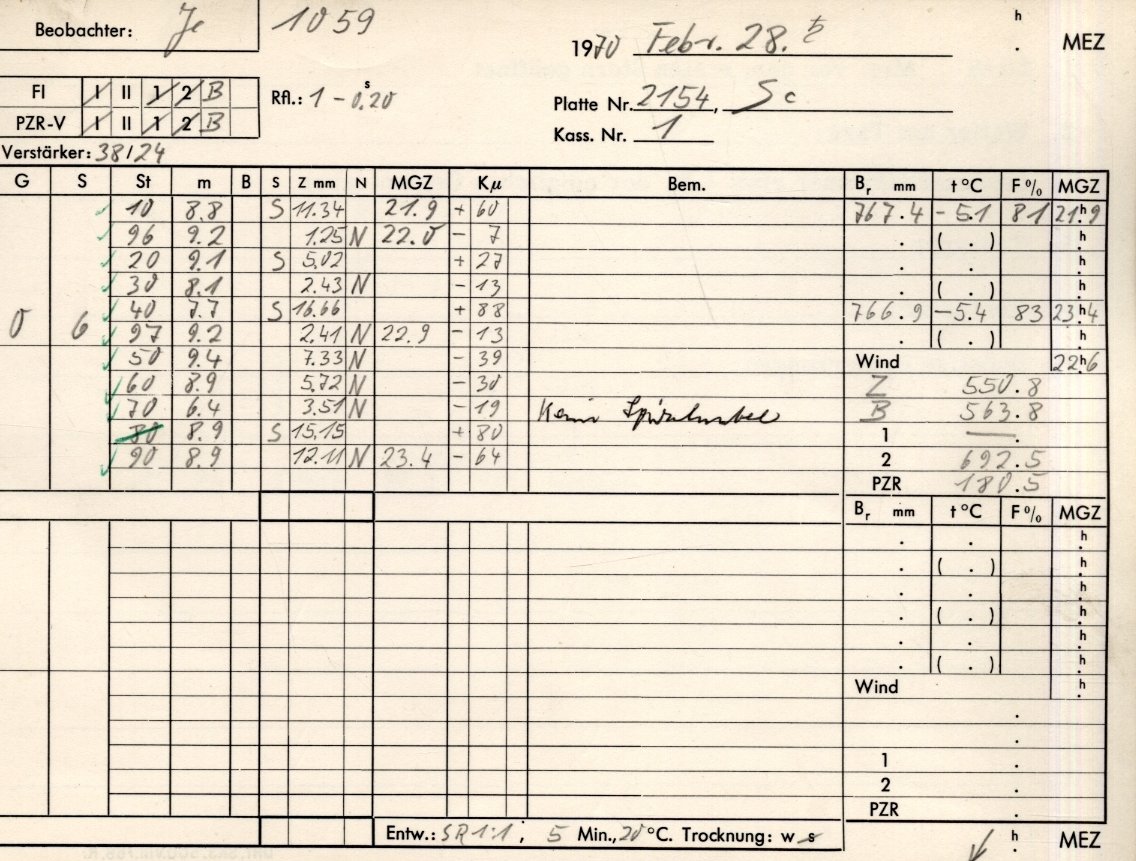 Beobachter: Je 1059
1970 Febr. 28. ♄ h . MEZ
FI I II 1 2 B Rfl.: 1 - 0.ˢ20
PZR-V I II 1 2 B
Platte Nr. 2154, Sc
Kass. Nr. 1
Verstärker: 38/24
G S St m B S Z mm N MGZ Kμ Bem. Br mm t °C F % MGZ
10 8.8 S 11.34 21.9 + 60 767.4 - 5.1 81 21.h9
96 9.2 1.25 N 22.0 - 7 . ( . ) .h
20 9.1 S 5.02 + 27 . . .h
30 8.1 2.43 N - 13 . ( . ) .h
0 6 40 7.7 S 16.66 + 88 766.9 - 5.4 83 23.h4
97 9.2 2.41 N 22.9 - 13 . ( . ) .h
50 9.4 7.33 N - 39 Wind 22.h6
60 8.9 5.72 N - 30 Z 550.8
70 6.4 3.51 N - 19 Kein Spiralnebel B 563.8
80 8.9 S 15.15 + 80 1 — .
90 8.9 12.11 N 23.4 - 64 2 692.5
PZR 180.5
Br mm t °C F % MGZ
. . .h
. ( . ) .h
. . .h
. ( . ) .h
. . .h
. ( . ) .h
Wind .h
.
.
1 .
2 .
PZR .
Entw.: SR 1:1 ; 5 Min., 20 °C. Trocknung: w s
h . MEZ